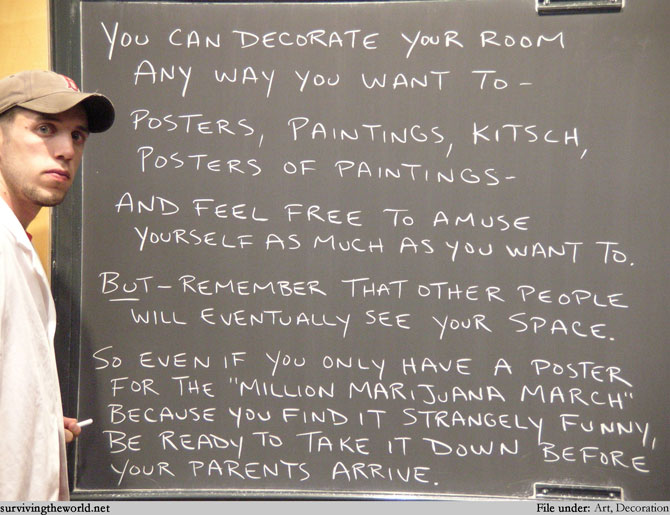 YOU CAN DECORATE YOUR ROOM
ANY WAY YOU WANT TO -
POSTERS, PAINTINGS, KITSCH,
POSTERS OF PAINTINGS -
AND FEEL FREE TO AMUSE
YOURSELF AS MUCH AS YOU WANT TO.
BUT - REMEMBER THAT OTHER PEOPLE
WILL EVENTUALLY SEE YOUR SPACE.
SO EVEN IF YOU ONLY HAVE A POSTER
FOR THE "MILLION MARIJUANA MARCH"
BECAUSE YOU FIND IT STRANGELY FUNNY,
BE READY TO TAKE IT DOWN BEFORE
YOUR PARENTS ARRIVE.
survivingtheworld.net
File under: Art, Decoration